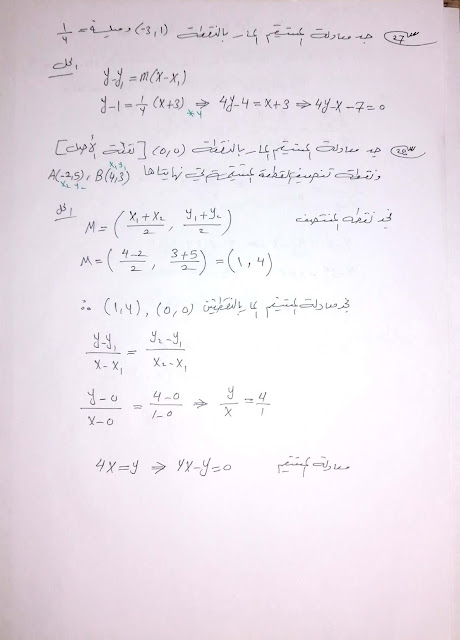 س27 جد معادلة المستقيم المار بالنقطة (-3,1) وميله = 1/4
الحل
y-y₁ = m(x-x₁)
y-1 = 1/4 (x+3) ⇒ 4y-4 = x+3 ⇒ 4y-x-7=0
*4
س28 جد معادلة المستقيم المار بالنقطة (0,0) [نقطة الأصل]
ونقطة تنصيف القطعة المستقيمة التي نهايتاها A(-2,5), B(4,3)
x₁ y₁
x₂ y₂
الحل
نجد نقطة المنتصف
M = ( (x₁+x₂)/2 , (y₁+y₂)/2 )
M = ( (4-2)/2 , (3+5)/2 ) = (1,4)
نجد معادلة المستقيم المار بالنقطتين (0,0) , (1,4) ∴
(y-y₁)/(x-x₁) = (y₂-y₁)/(x₂-x₁)
(y-0)/(x-0) = (4-0)/(1-0) ⇒ y/x = 4/1
4x=y ⇒ 4x-y=0 معادلة المستقيم